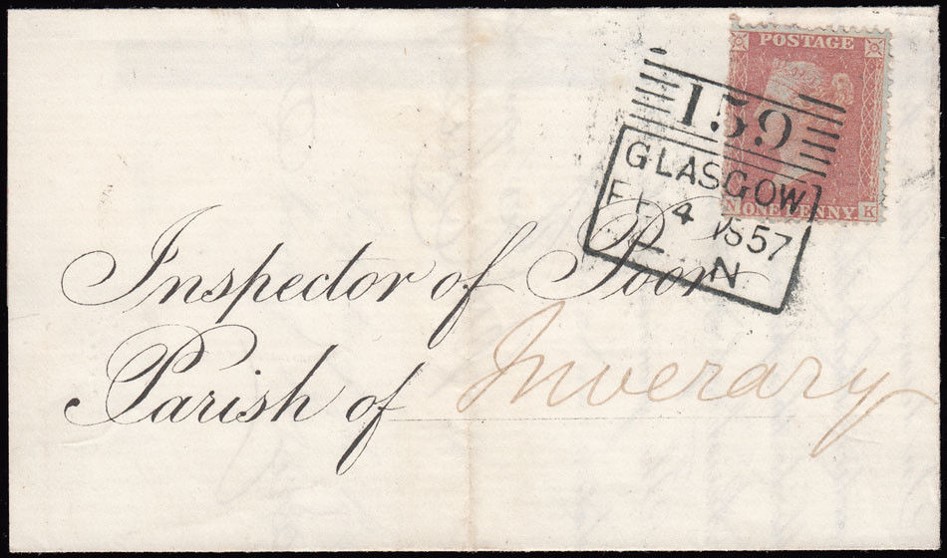 POSTAGE
159
GLASGOW
N ONE PENNY K
FE 4 1857
N
Inspector of Poor
Parish of Inverary